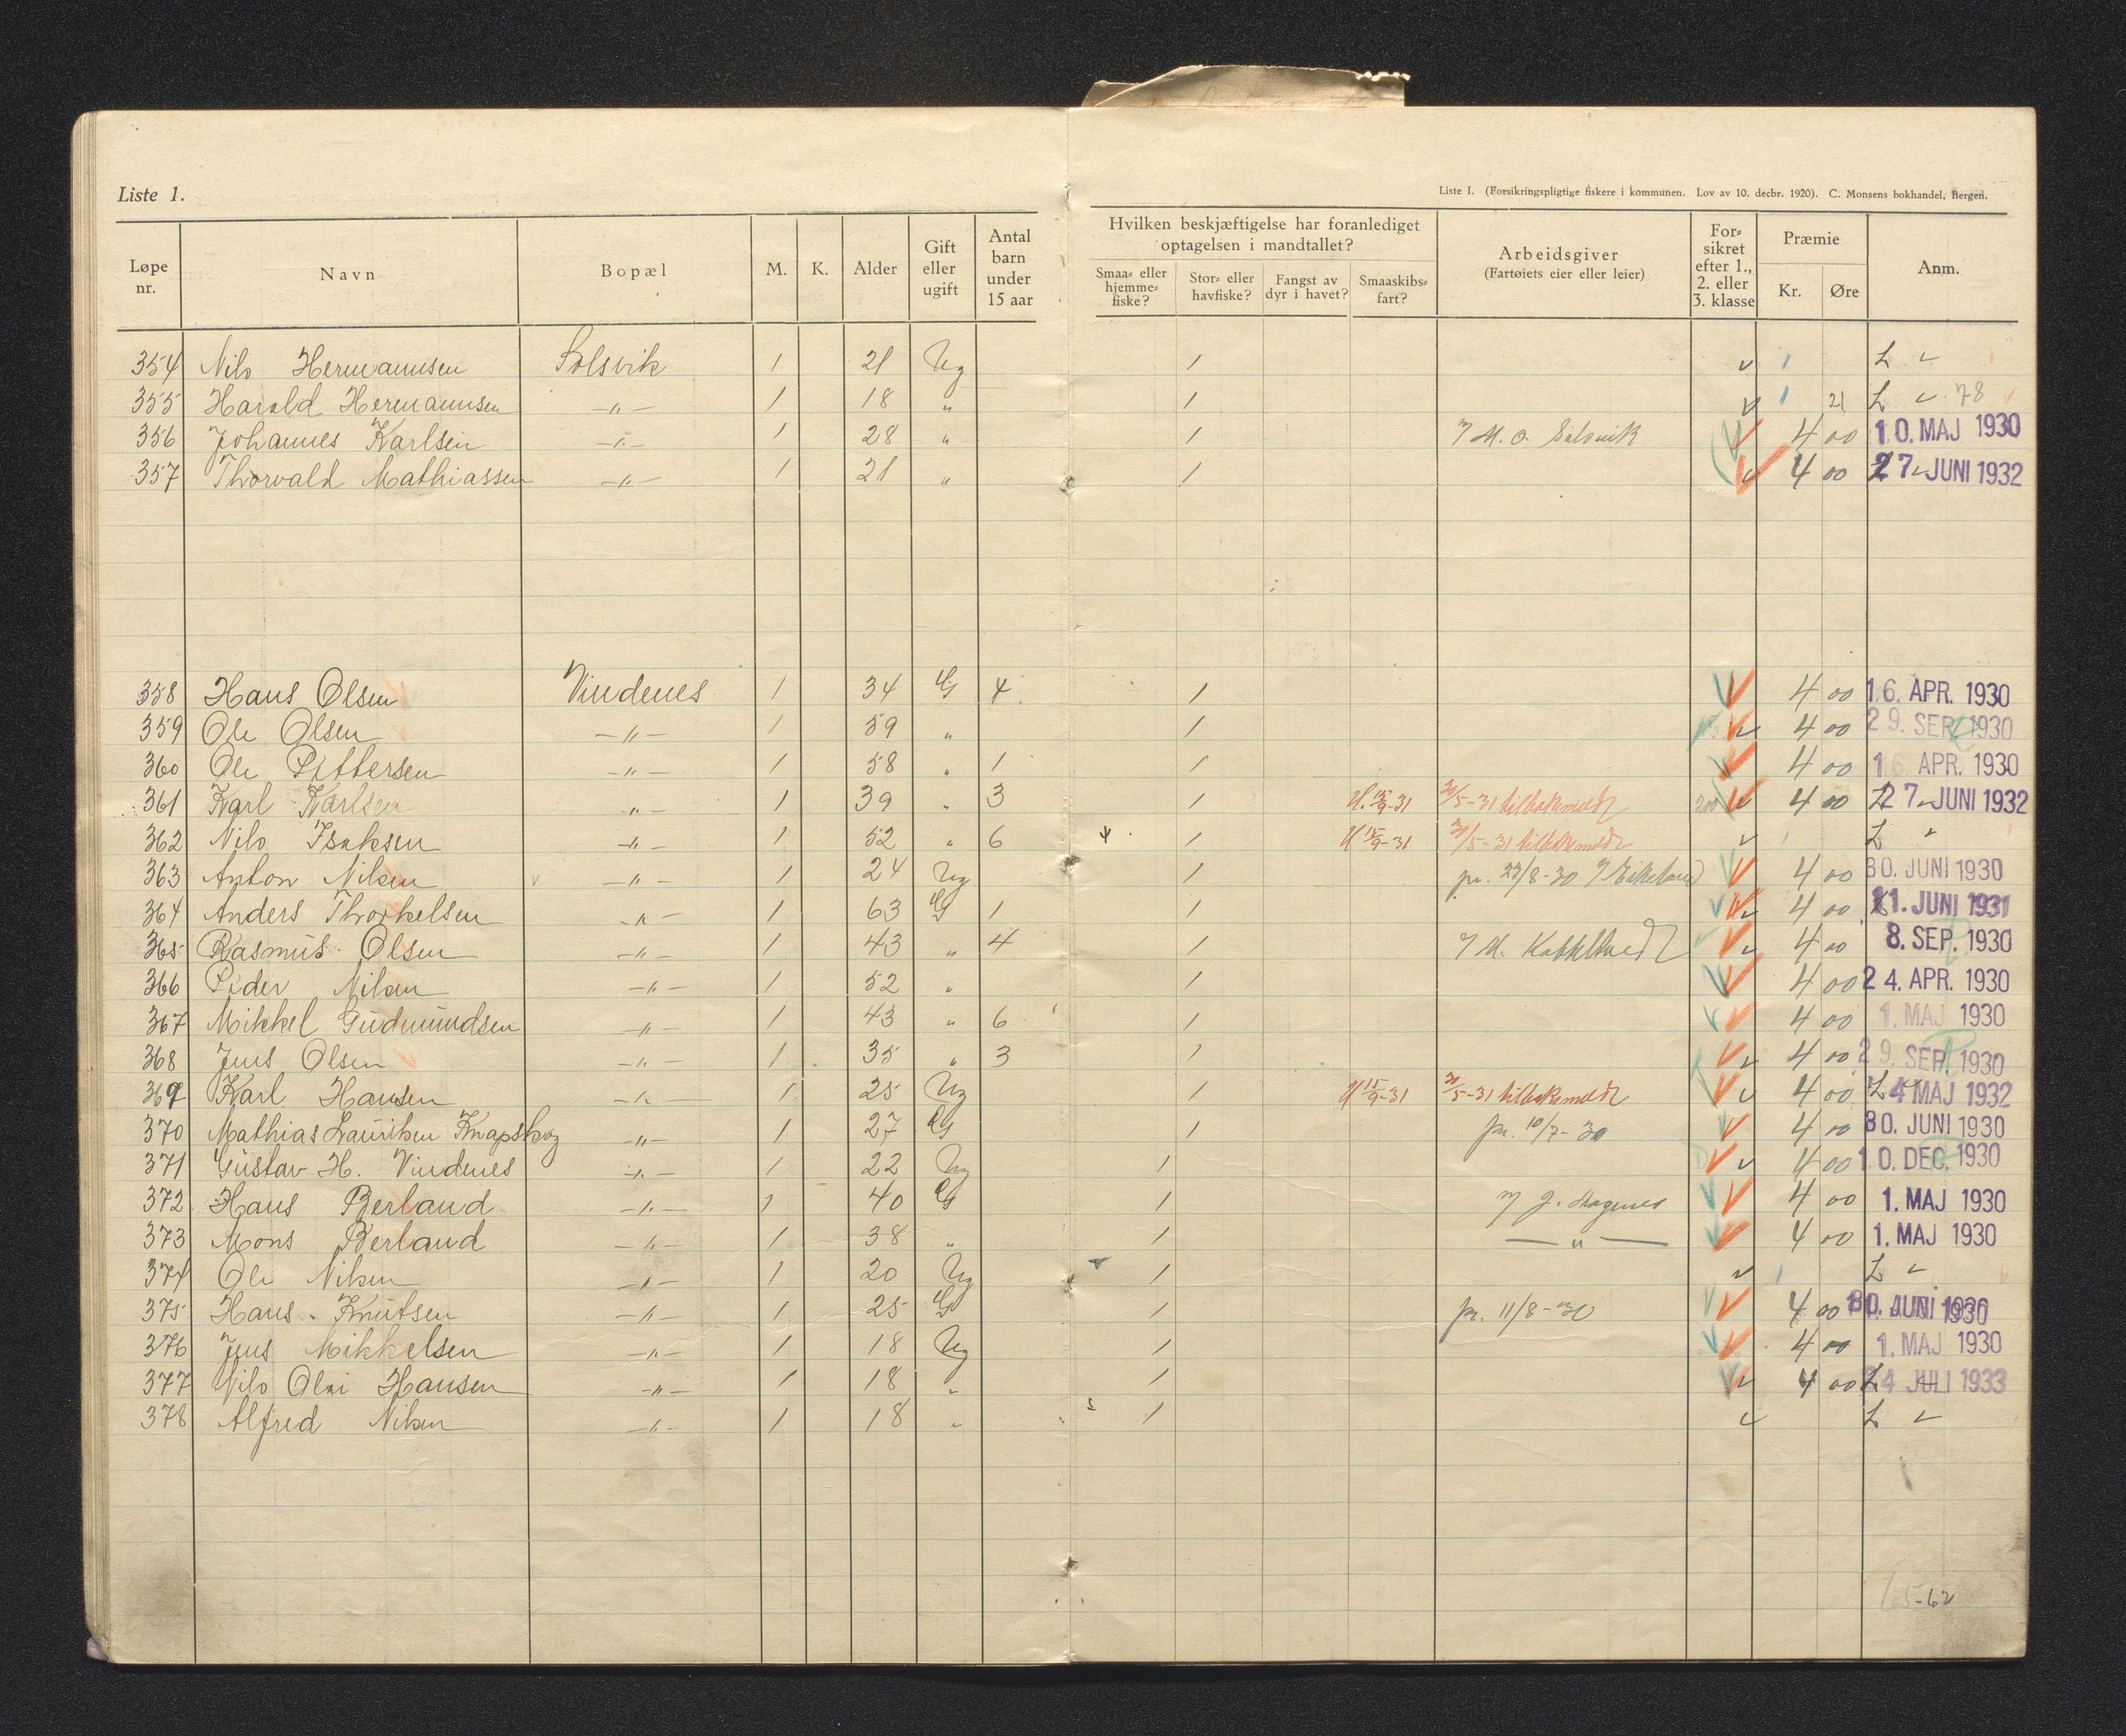 Liste 1.
Liste I. (Forsikringspligtige fiskere i kommunen. Lov av 10. decbr. 1920). C. Monsens bokhandel, Bergen.
Løpe nr. Navn Bopæl M. K. Alder Gift eller ugift Antal barn under 15 aar Hvilken beskjæftigelse har foranlediget optagelsen i mandtallet? Smaa- eller hjemmefiske? Stor- eller havfiske? Fangst av dyr i havet? Smaaskibsfart? Arbeidsgiver (Fartøiets eier eller leier) Forsikret efter 1., 2. eller 3. klasse Præmie Kr. Øre Anm.
354 Nils Hermannsen Solsvik 1 21 Ug 1 L
355 Harald Hermannsen -"- 1 18 " 1 21 L 78
356 Johannes Karlsen -"- 1 28 " 1 M. O. Solsvik 4 00 10. MAJ 1930
357 Thorvald Mathiassen -"- 1 21 " 1 4 00 27. JUNI 1932
358 Hans Olsen Vindenes 1 34 G 4 1 4 00 16. APR. 1930
359 Ole Olsen -"- 1 59 " 1 4 00 29. SEP. 1930
360 Ole Pettersen -"- 1 58 " 1 1 4 00 16. APR. 1930
361 Karl Karlsen -"- 1 39 " 3 1 15/9-31 30/5-31 tilbakemeldt 200 4 00 L 27. JUNI 1932
362 Nils Isaksen -"- 1 52 " 6 1 15/9-31 30/5-31 tilbakemeldt L
363 Anton Nilsen -"- 1 24 Ug 1 pr. 23/8-30 4 00 30. JUNI 1930
364 Anders Thorkelsen -"- 1 63 G 1 1 4 00 11. JUNI 1931
365 Rasmus Olsen -"- 1 43 " 4 1 4 00 8. SEP. 1930
366 Peder Nilsen -"- 1 52 " 1 4 00 24. APR. 1930
367 Mikkel Gudmundsen -"- 1 43 " 6 1 4 00 1. MAJ 1930
368 Jens Olsen -"- 1 35 " 3 1 4 00 29. SEP. 1930
369 Karl Hansen -"- 1 25 Ug 1 15/9-31 30/5-31 tilbakemeldt 4 00 L 4 MAJ 1932
370 Mathias Lauritsen Knapskog -"- 1 27 G 1 pr. 10/7-30 4 00 30. JUNI 1930
371 Gustav H. Vindenes -"- 1 22 Ug 1 4 00 10. DEC. 1930
372 Hans Berland -"- 1 40 G 1 J. Magnus 4 00 1. MAJ 1930
373 Mons Berland -"- 1 38 " 1 -"- 4 00 1. MAJ 1930
374 Ole Nilsen -"- 1 20 Ug 1 L
375 Hans Knutsen -"- 1 25 G 1 pr. 11/8-30 4 00 30. JUNI 1930
376 Jens Mikkelsen -"- 1 18 Ug 1 4 00 1. MAJ 1930
377 Nils Olai Hansen -"- 1 18 " 1 4 00 L 4 JULI 1933
378 Alfred Nilsen -"- 1 18 " 1 L
65-62